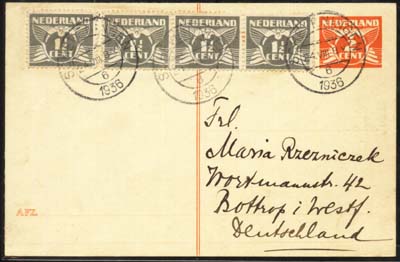 NEDERLAND NEDERLAND NEDERLAND NEDERLAND NEDERLAND NEDERLAND
1½ 1½ 1½ 1½ 1½
CENT CENT CENT CENT CENT CENT
6 6 6
1936 1936 1936
Frl.
Maria Rzezniczek
Wortmannstr. 42
Bottrop i/Westf.
Deutschland
AFZ.